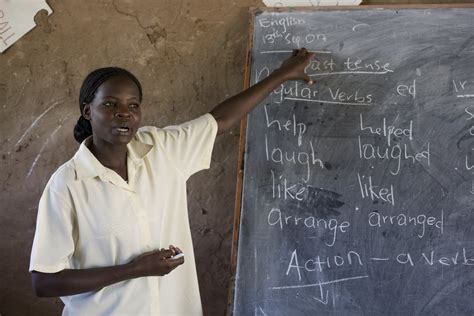 English
13th Sep. 07
Past tense
Regular Verbs ed
help helped
laugh laughed
like liked
arrange arranged
Action - a verb